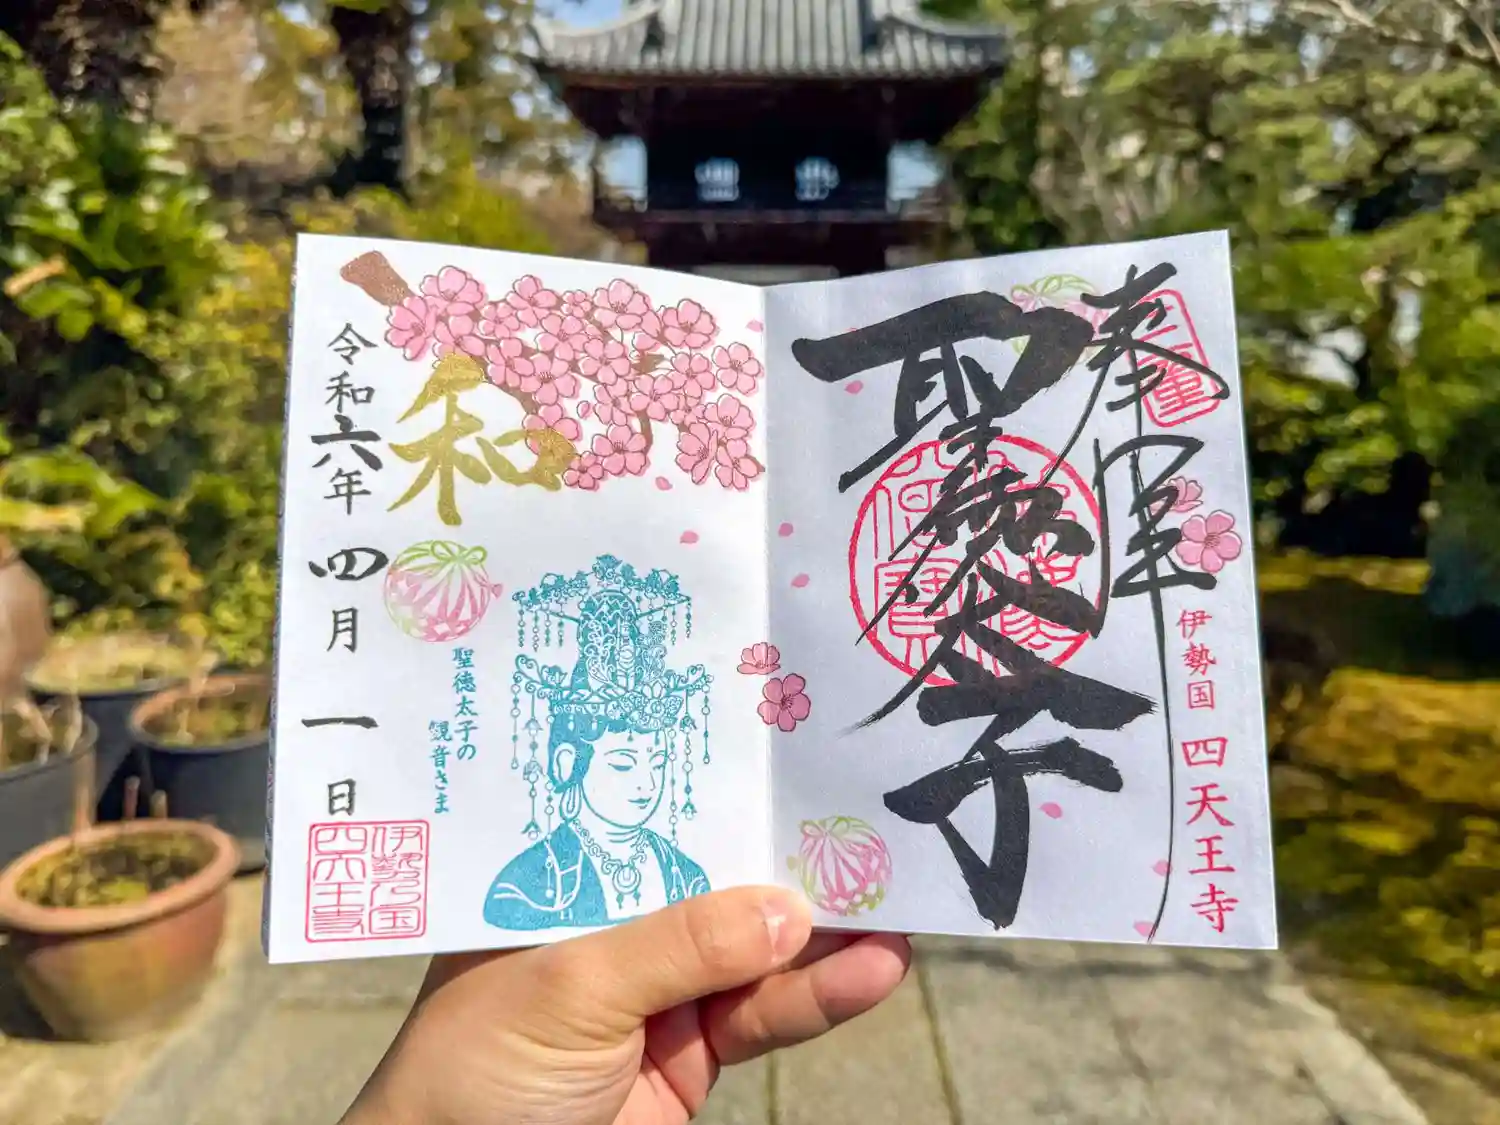 奉拝
三重
聖徳太子
伊勢国 四天王寺
和
聖徳太子の
観音さま
令和六年四月一日
伊勢乃国
四天王寺